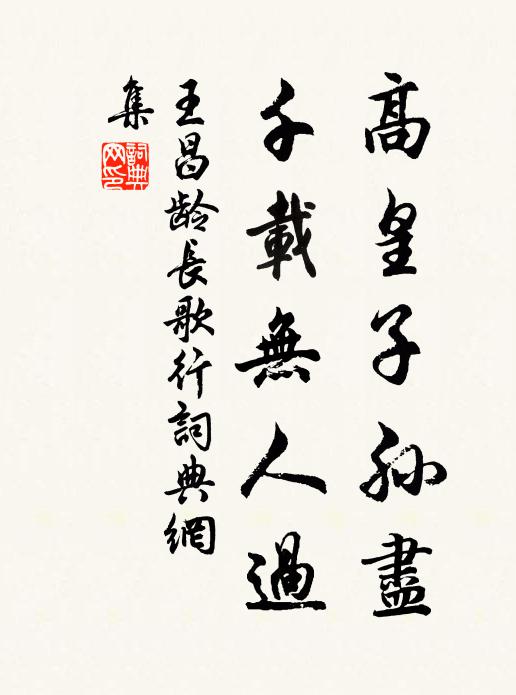 高皇子孫盡
千載無人過
王昌齡長歌行詞典網
集
詞典
网印